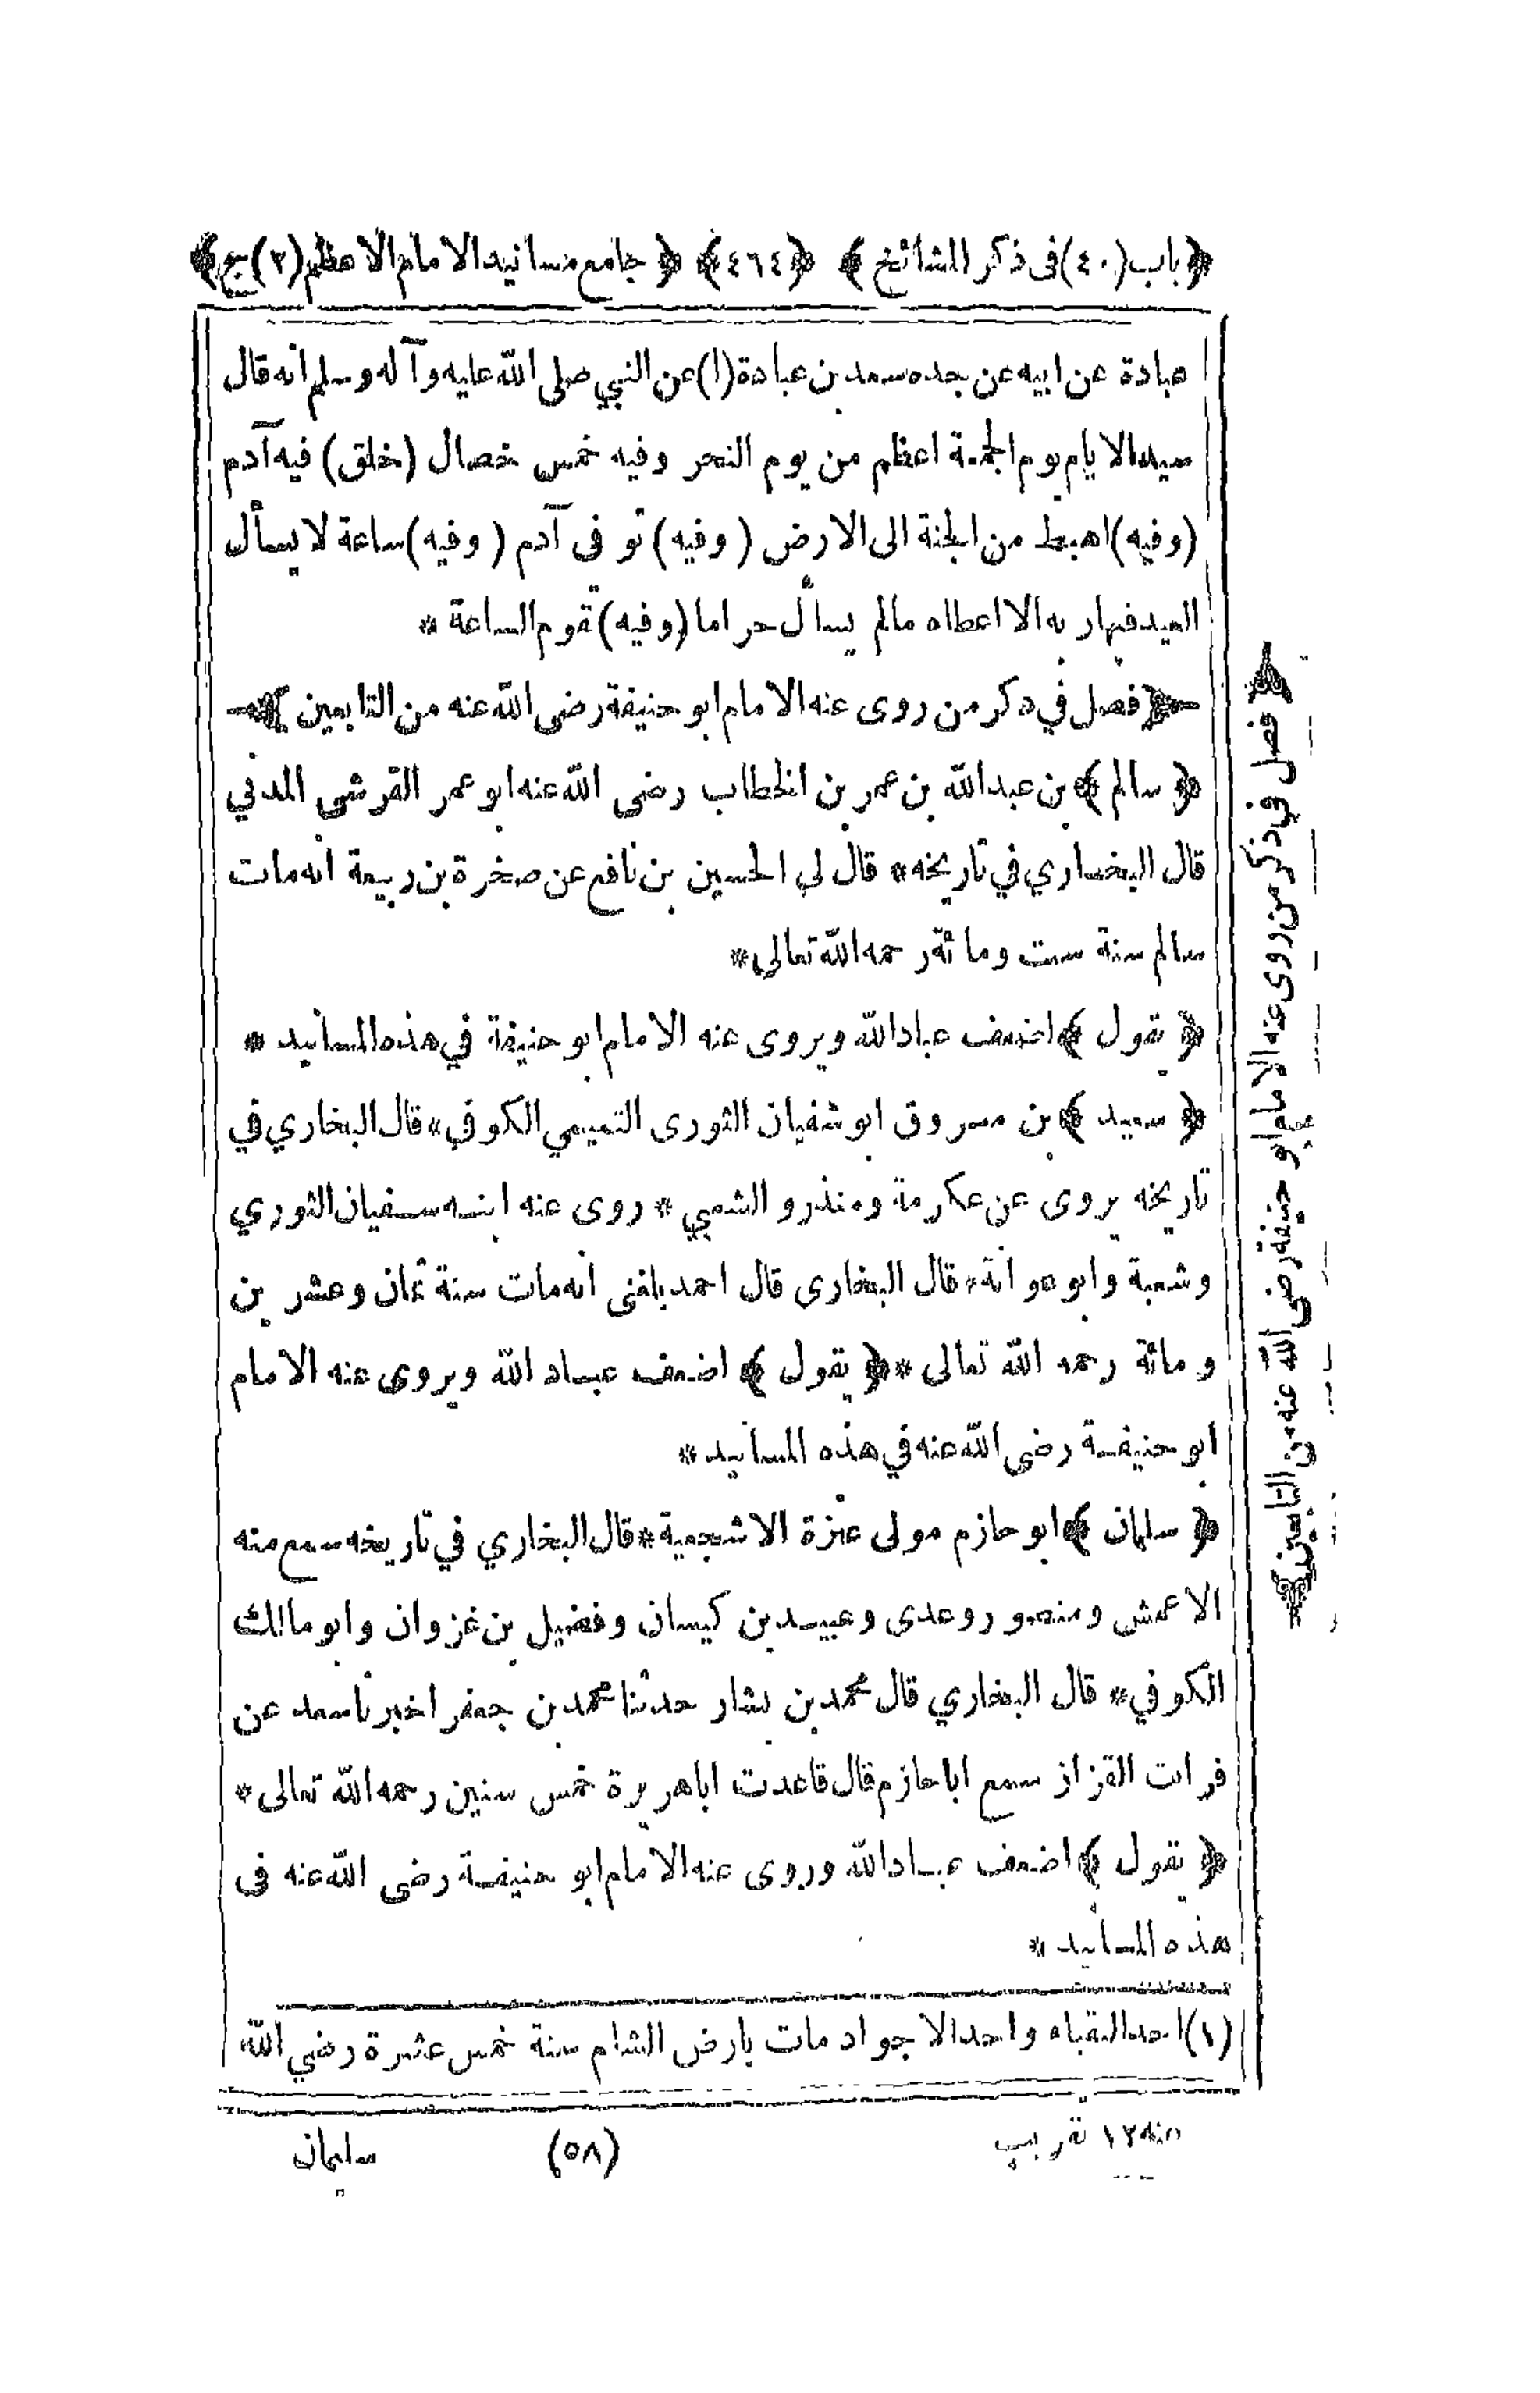 ﴿ باب (٤٠) فى ذكر المشائخ ﴾ ﴿ ٤٦٤ ﴾ ﴿ جامع مسانيد الامام الاعظم (٢) ج ﴾
عبادة عن ابيه عن جده سعد بن عبادة (١) عن النبي صلى الله عليه وآله وسلم انه قال
سيد الايام يوم الجمعة اعظم من يوم النحر وفيه خمس خصال (خلق) فيه آدم
(وفيه) اهبط من الجنة الى الارض (وفيه) توفى آدم (وفيه) ساعة لا يسأل
العبد فيها ربه الا اعطاه مالم يسأل حراما (وفيه) تقوم الساعة *
﴿ فصل في ذكر من روى عنه الامام ابو حنيفة رضى الله عنه من التابعين ﴾
﴿ سالم ﴾ بن عبد الله بن عمر بن الخطاب رضى الله عنه ابو عمر القرشى المدني
قال البخاري في تاريخه * قال لي الحسين بن نافع عن صخرة بن ربيعة انه مات
سالم سنة ست ومائة رحمه الله تعالى *
﴿ يقول ﴾ اضعف عباد الله ويروى عنه الامام ابو حنيفة في هذه المسانيد *
﴿ سعيد ﴾ بن مسروق ابو شفيان الثورى التميمي الكوفي * قال البخاري في
تاريخه يروى عن عكرمة ومنذر و الشعبي * روى عنه ابنه سفيان الثوري
وشعبة وابو عوانة * قال البخارى قال احمد بلغنى انه مات سنة ثمان وعشر ين
ومائة رحمه الله تعالى * ﴿ يقول ﴾ اضعف عباد الله ويروى عنه الامام
ابو حنيفة رضى الله عنه في هذه المسانيد *
﴿ سلمان ﴾ ابو حازم مولى عنزة الاشجعية * قال البخاري في تاريخه سمع منه
الاعمش ومنصور وعدى وعبيد بن كيسان وفضيل بن غزوان وابو مالك
الكوفي * قال البخاري قال محمد بن بشار حدثنا محمد بن جعفر اخبرنا سعد عن
فرات القزاز سمع ابا حازم قال قاعدت ابا هريرة خمس سنين رحمه الله تعالى *
﴿ يقول ﴾ اضعف عباد الله وروى عنه الامام ابو حنيفة رضى الله عنه فى
هذه المسانيد *
(١) احد النقباء واحد الاجواد مات بارض الشام سنة خمس عشرة رضي الله
عنه ١٢ تقريب
(٥٨)
سليمان
﴿ فصل في ذكر من روى عنه الامام ابو حنيفة رضى الله عنه من التابعين ﴾